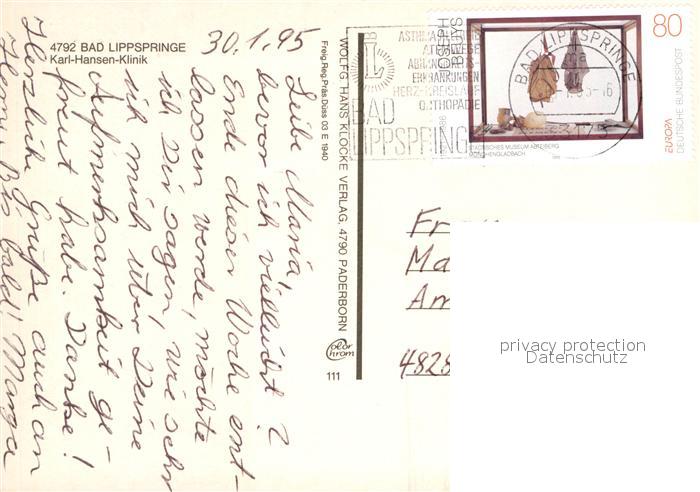 4792 BAD LIPPSPRINGE
Karl-Hansen-Klinik
30.1.95
Liebe Maria!
bevor ich vielleicht ?
Ende dieser Woche ent-
lassen werde, möchte
ich Dir sagen, wie sehr
ich mich über Deine
Aufmerksamkeit ge-
freut habe. Danke!
Herzliche Grüße auch an
Bis bald! Marga
Freig. Reg. Präs. Düss 03 E 1940
WOLFG. HANS KLOCKE VERLAG, 4790 PADERBORN
color
chrom
111
BAD
LIPPSPRINGE
ATEMWEGE
HERZ-KREISLAUF
ORTHOPÄDIE
BAD LIPPSPRINGE
JOSEPH
BEUYS
80
DEUTSCHE BUNDESPOST
EUROPA
STÄDTISCHES MUSEUM ABTEIBERG
MÖNCHENGLADBACH
Fr
Ma
Am
4828
privacy protection
Datenschutz